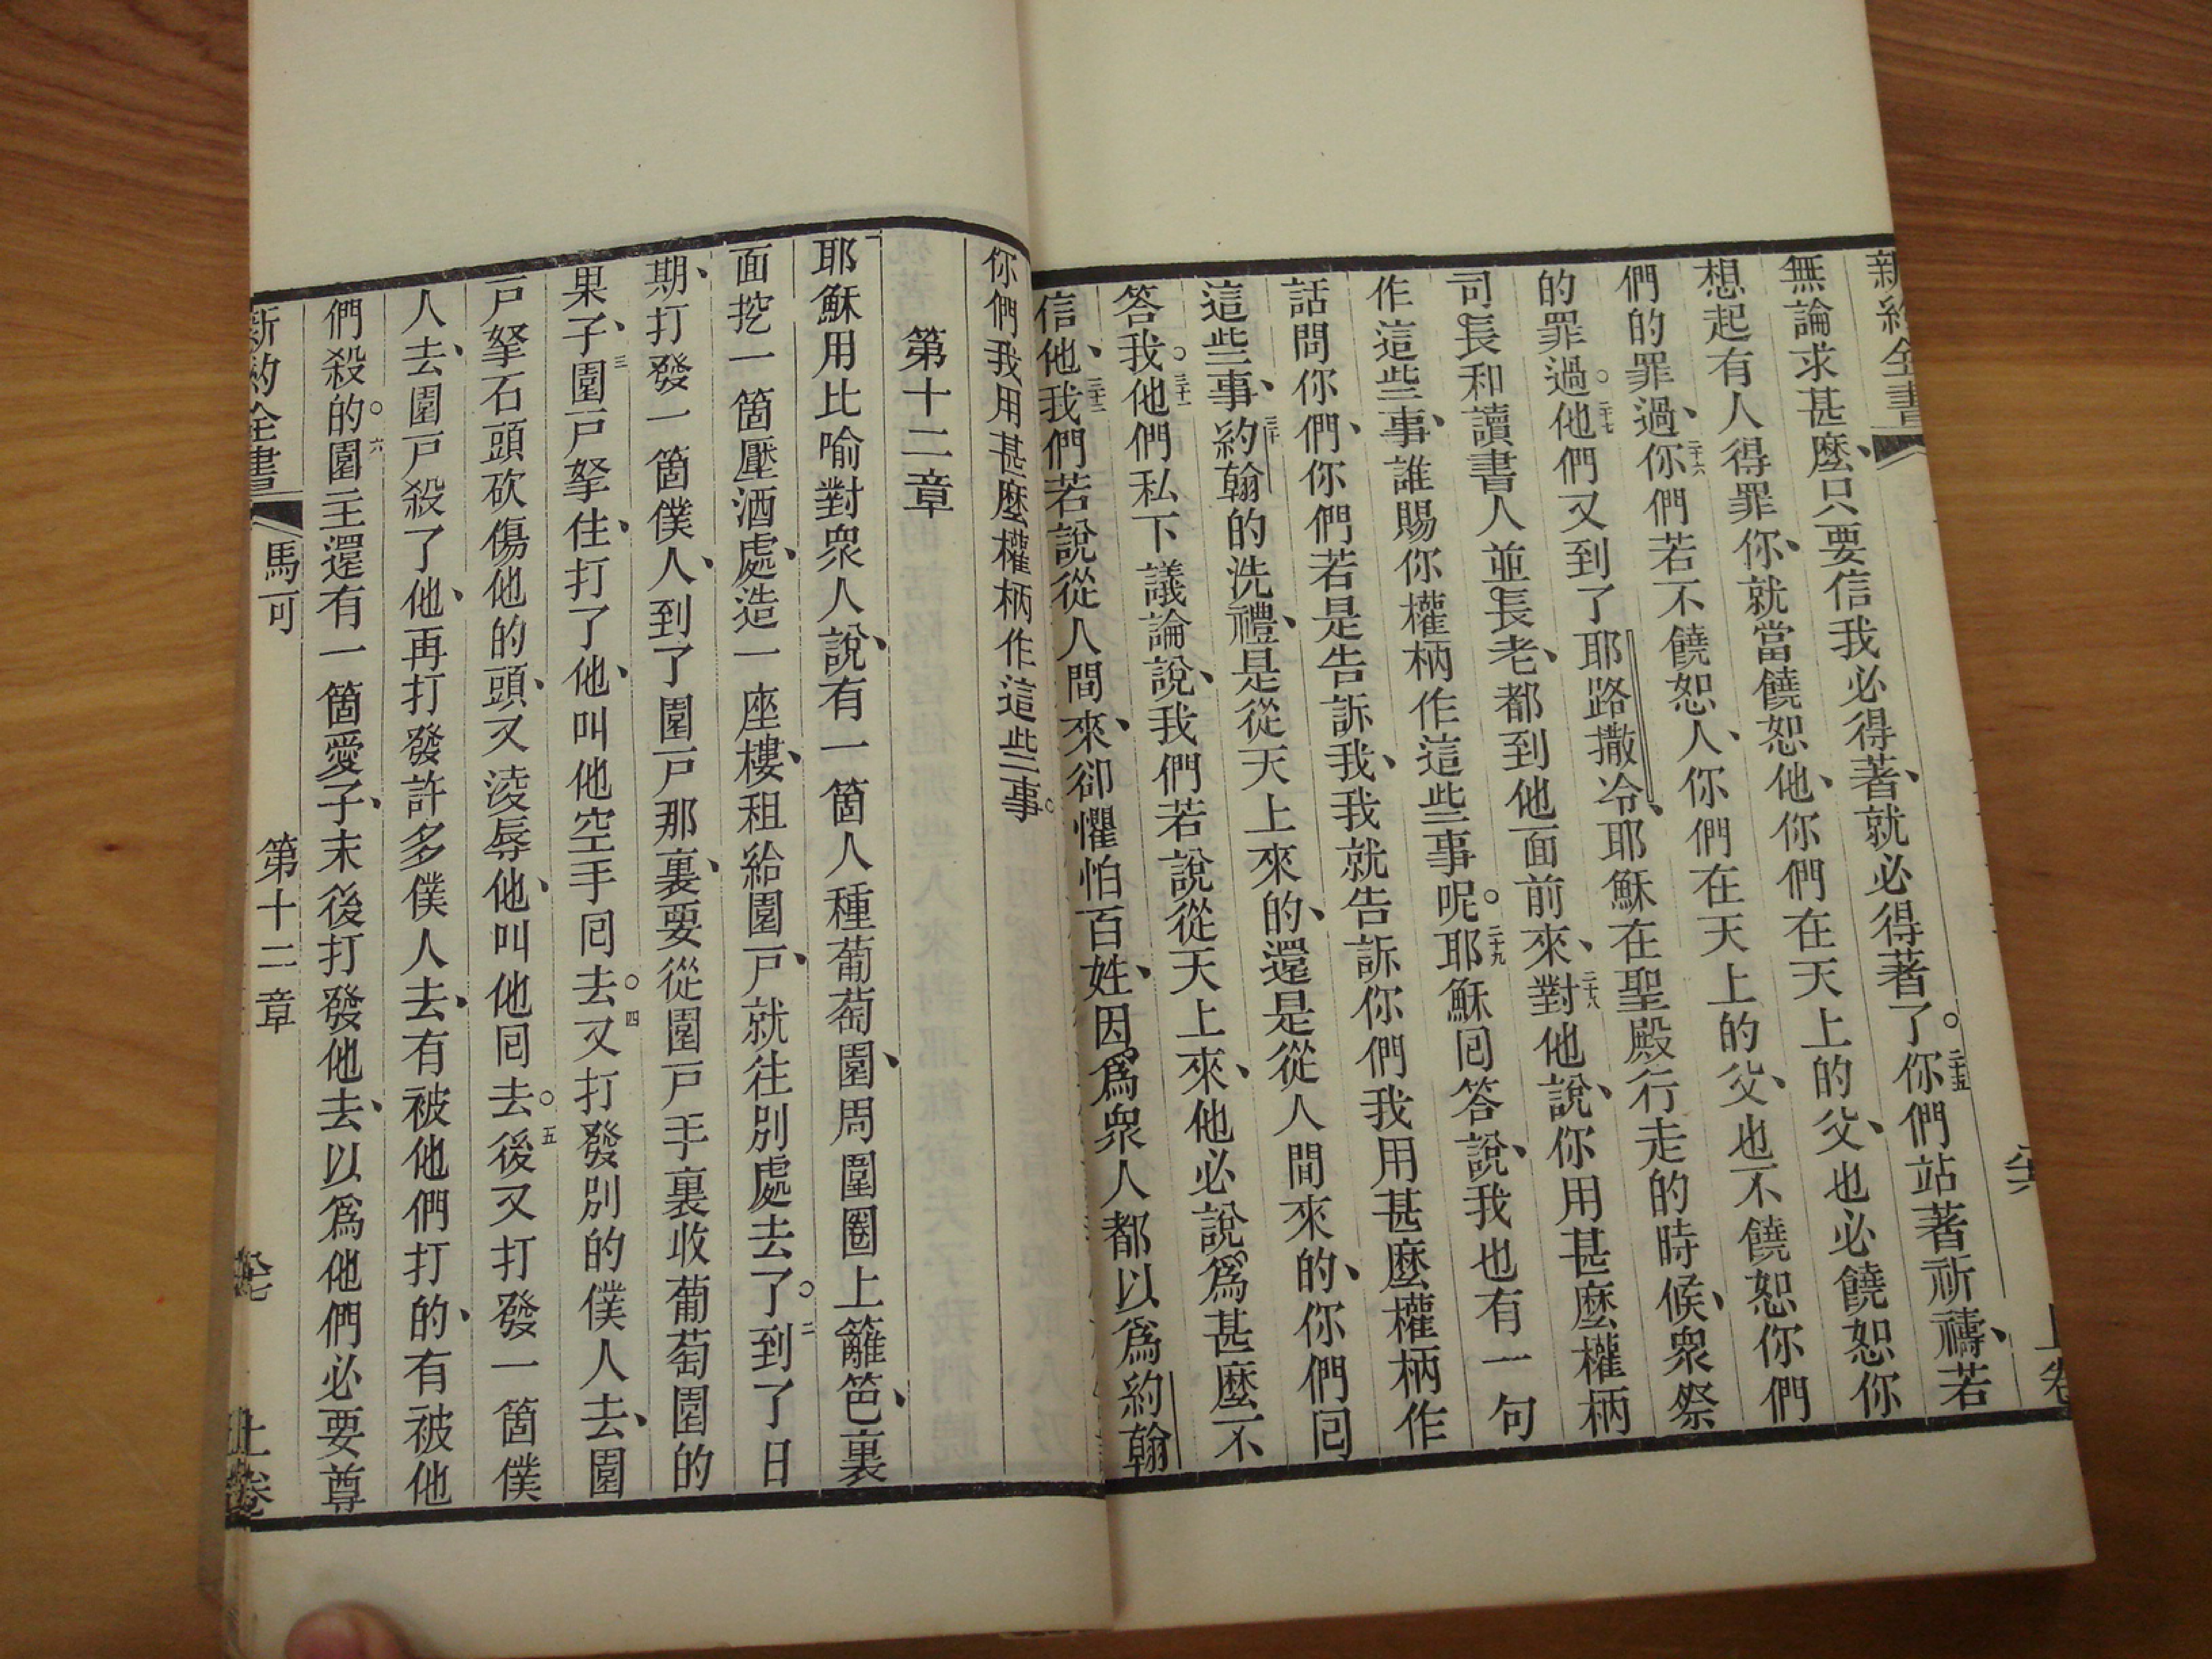 新約全書
上卷
無論求甚麽、只要信我必得著、就必得著了。二十五你們站著祈禱、若
想起有人得罪你、就當饒恕他、你們在天上的父、也必饒恕你
們的罪過、二十六你們若不饒恕人、你們在天上的父、也不饒恕你們
的罪過。二十七他們又到了耶路撒冷、耶穌在聖殿行走的時候、衆祭
司長和讀書人並長老、都到他面前來、二十八對他說、你用甚麽權柄
作這些事、誰賜你權柄作這些事呢。二十九耶穌囘答說、我也有一句
話問你們、你們若是告訴我、我就告訴你們我用甚麽權柄作
這些事、三十約翰的洗禮、是從天上來的、還是從人間來的、你們囘
答我。三十一他們私下議論說、我們若說從天上來、他必說爲甚麽不
信他、三十二我們若說從人間來、卻懼怕百姓、因爲衆人都以爲約翰
你們我用甚麽權柄作這些事。
第十二章
耶穌用比喻對衆人說、有一箇人種葡萄園、周圍圈上籬笆、裏
面挖一箇壓酒處、造一座樓、租給園戸、就往別處去了。二到了日
期、打發一箇僕人、到了園戸那裏、要從園戸手裏收葡萄園的
果子、三園戸拏住、打了他、叫他空手囘去。四又打發別的僕人去、園
戸拏石頭砍傷他的頭、又淩辱他、叫他囘去。五後又打發一箇僕
人去、園戸殺了他、再打發許多僕人去、有被他們打的、有被他
們殺的。六園主還有一箇愛子、末後打發他去、以爲他們必要尊
新約全書 馬可 第十二章 上卷